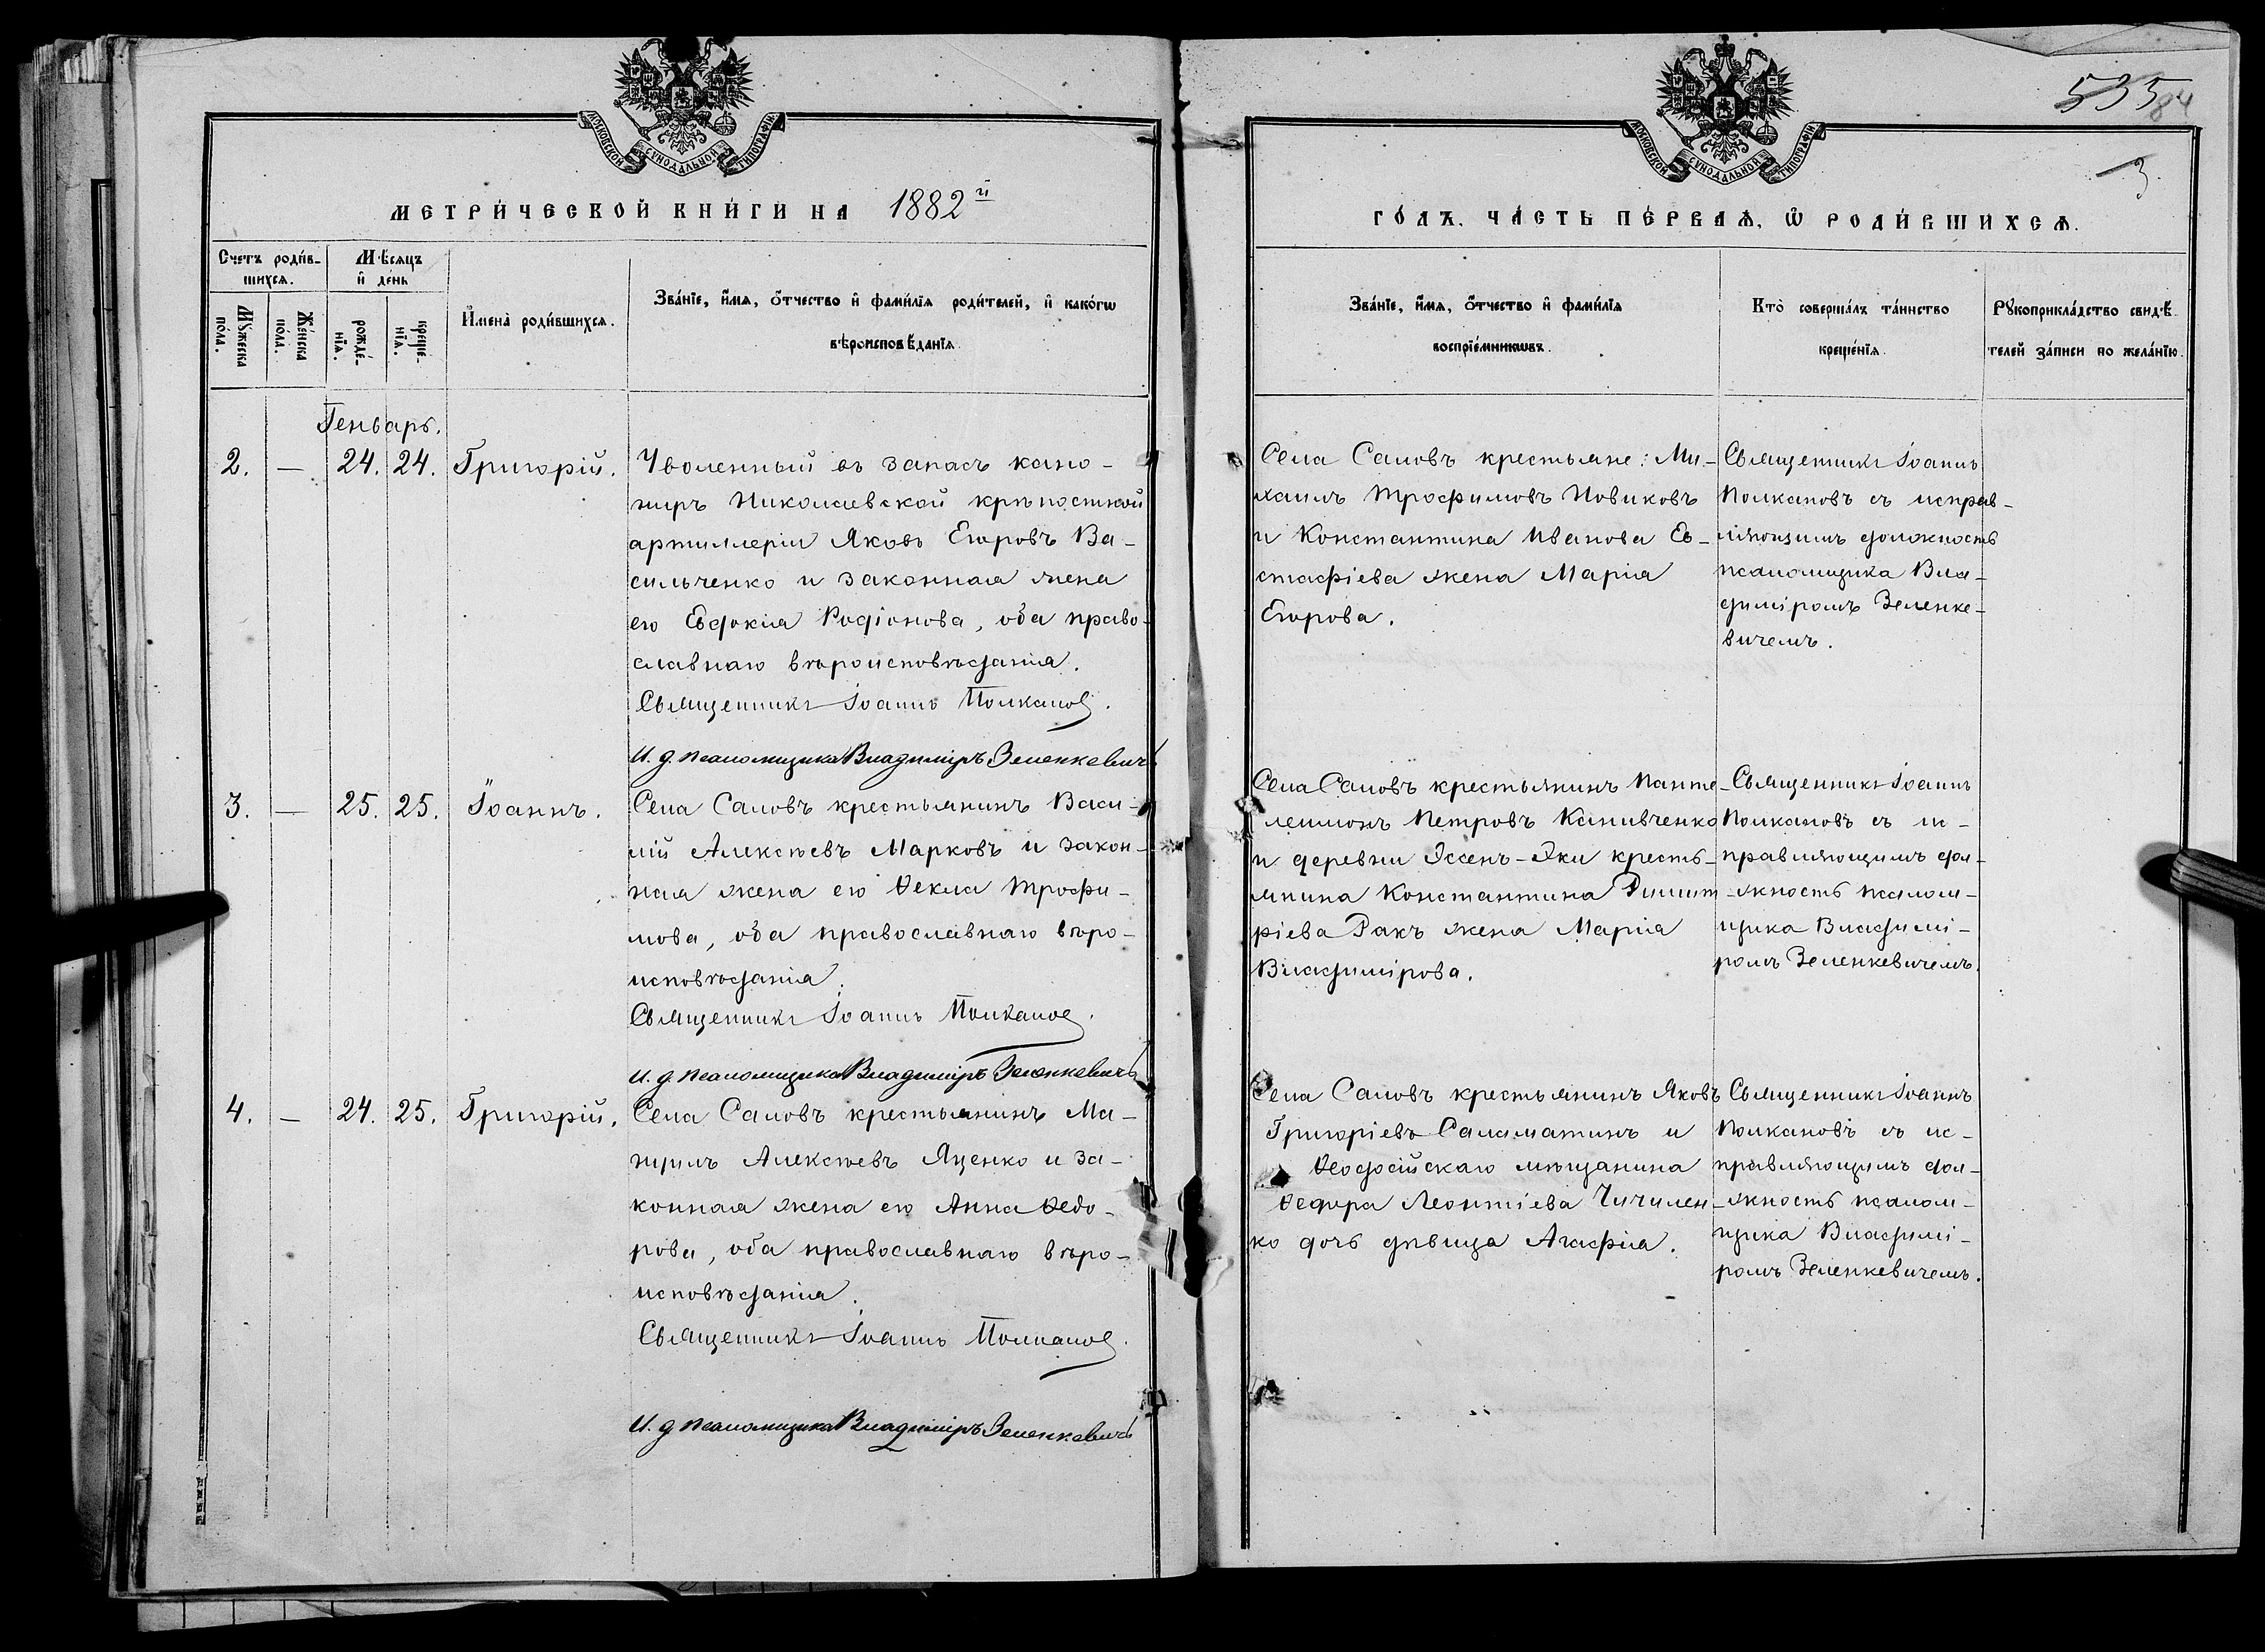 МОСКОВСКОЙ СѴНОДАЛЬНОЙ ТИПОГРАФІИ
МЕТРИ́ЧЕСКОЙ КНИ́ГИ НА 1882й
Счетъ роди́в-
шихсѧ.
Мѣ́сѧцъ
и҆ де́нь
Мꙋ́жеска
по́ла.
Же́нска
по́ла.
рожде́-
нїѧ.
креще́-
нїѧ.
И҆мена̀ роди́вшихсѧ.
Зва́нїе, и҆́мѧ, ѻ҆́тчество и҆ фами́лїѧ роди́телей, и҆ како́гѡ
вѣроисповѣ́данїѧ.
Генварь.
2. — 24. 24. Григорій.
Уволенный въ запасъ кано-
ниръ Николаевской крѣпостной
артиллеріи Яковъ Егоровъ Ва-
сильченко и законная жена
его Евдокія Родіонова, оба право-
славнаго вѣроисповѣданія.
Священникъ Іоаннъ Полкановъ.
И. д. псаломщика Владиміръ Зеленкевичъ
3. — 25. 25. Іоаннъ.
Села Саловъ крестьянинъ Васи-
лій Алексѣевъ Марковъ и закон-
ная жена его Ѳекла Трофи-
мова, оба православнаго вѣро-
исповѣданія.
Священникъ Іоаннъ Полкановъ.
И. д. псаломщика Владиміръ Зеленкевичъ
4. — 24. 25. Григорій.
Села Саловъ крестьянинъ Ма-
Алексѣевъ Яценко и за-
конная жена его Анна Ѳедо-
рова, оба православнаго вѣро-
исповѣданія.
Священникъ Іоаннъ Полкановъ.
И. д. псаломщика Владиміръ Зеленкевичъ
535
84
3
МОСКОВСКОЙ СѴНОДАЛЬНОЙ ТИПОГРАФІИ
ГО́ДЪ. ЧА́СТЬ ПЕ́РВАѦ, Ѡ҆ РОДИ́ВШИХСѦ.
Зва́нїе, и҆́мѧ, ѻ҆́тчество и҆ фами́лїѧ
воспрїе́мникѡвъ.
Кто̀ соверша́лъ та́инство
креще́нїѧ.
Рꙋкоприкла́дство свидѣ́-
телей за́писи по жела́нїю.
Села Саловъ крестьяне: Ми-
хаилъ Трофимовъ Новиковъ
и Константина Иванова Ев-
стафіева жена Марія
Егорова.
Священникъ Іоаннъ
Полкановъ съ исправ-
ляющимъ должность
псаломщика Вла-
диміромъ Зеленке-
вичемъ.
Села Саловъ крестьянинъ Панте-
леимонъ Петровъ Канивченко
и деревни Эссенъ-Эки кресть-
янина Константина Димит-
ріева Ракъ жена Марія
Владимірова.
Священникъ Іоаннъ
Полкановъ съ ис-
правляющимъ дол-
жность псалом-
щика Владимі-
ромъ Зеленкевичемъ.
Села Саловъ крестьянинъ Яковъ
Григоріевъ Саламатинъ и
Ѳеодосійскаго мѣщанина
Ѳедора Леонтіева Чичилен-
ко дочь дѣвица Агафія.
Священникъ Іоаннъ
Полкановъ съ ис-
правляющимъ дол-
жность псалом-
щика Владимі-
ромъ Зеленкевичемъ.